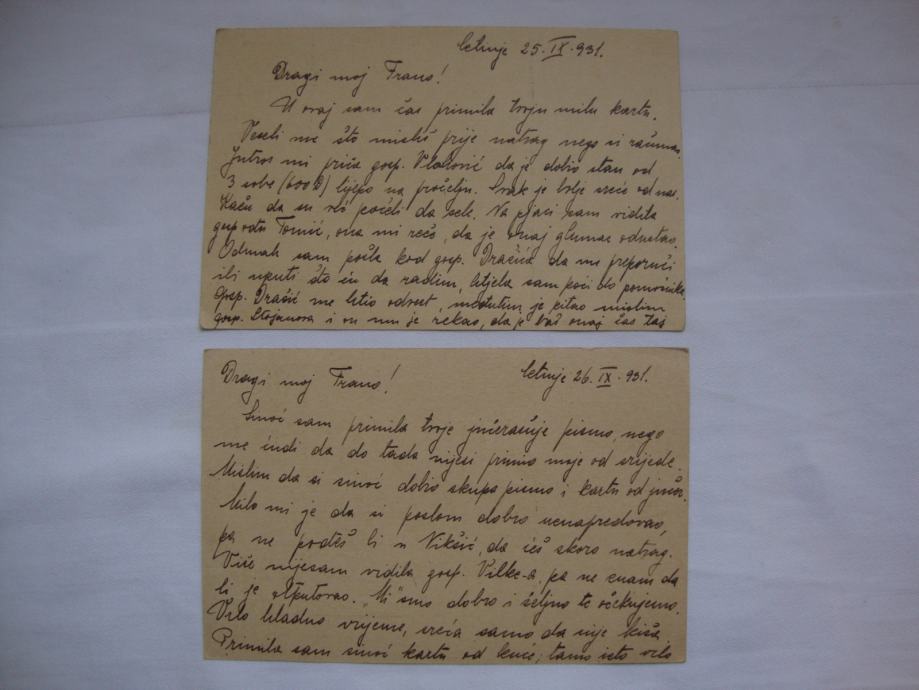 Cetinje 25. IX. 931.
Dragi moj Frano!
U ovaj sam čas primila tvoju milu kartu.
Veseli me što misliš prije natrag nego si računao.
Jutros mi priča gosp. Vlahović da je dobio stan od
3 sobe (600 D) lijepo na pročelju. Svak je bolje sreće od nas.
Kažu da su već počeli da sele. Na pjaci sam vidila
gospođu Tomić, ona mi reče, da je onaj glumac odustao.
Odmah sam pošla kod gosp. Dračića da me preporuči
ili uputi što ću da radim, htjela sam poći do pomoćnika
Gosp. Dračić me htio odvest, međutim je pitao mislim
gosp. Stojanova i on mu je rekao, da je baš onaj čas taj
Dragi moj Frano!
Cetinje 26. IX. 931.
Sinoć sam primila tvoje jučeranje pismo, nego
me čudi da do tada nijesi primio moje od srijede.
Mislim da si sinoć dobio skupa pismo i kartu od jučer.
Milo mi je da si poslom dobro unapredovao,
pa ne podješ li u Nikšić, da ćeš skoro natrag.
Više nijesam vidila gosp. Vilke-a, pa ne znam da
li je otputovao. "Mi" smo dobro i željno te očekujemo.
Vrlo hladno vrijeme, sreća samo da nije kiša.
Primila sam sinoć kartu od kuće; tamo isto vrlo